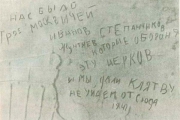 НАС БЫЛО
ТРОЕ МОСКВИЧЕЙ
ИВАНОВ СТЕПАНЧИКОВ
ЖУНТЯЕВ КОТОРЫЕ ОБОРОН
ЭТУ ЦЕРКОВ
И МЫ ДАЛИ КЛЯТВУ
НЕ УЙДЕМ ОТСЮДА
1941